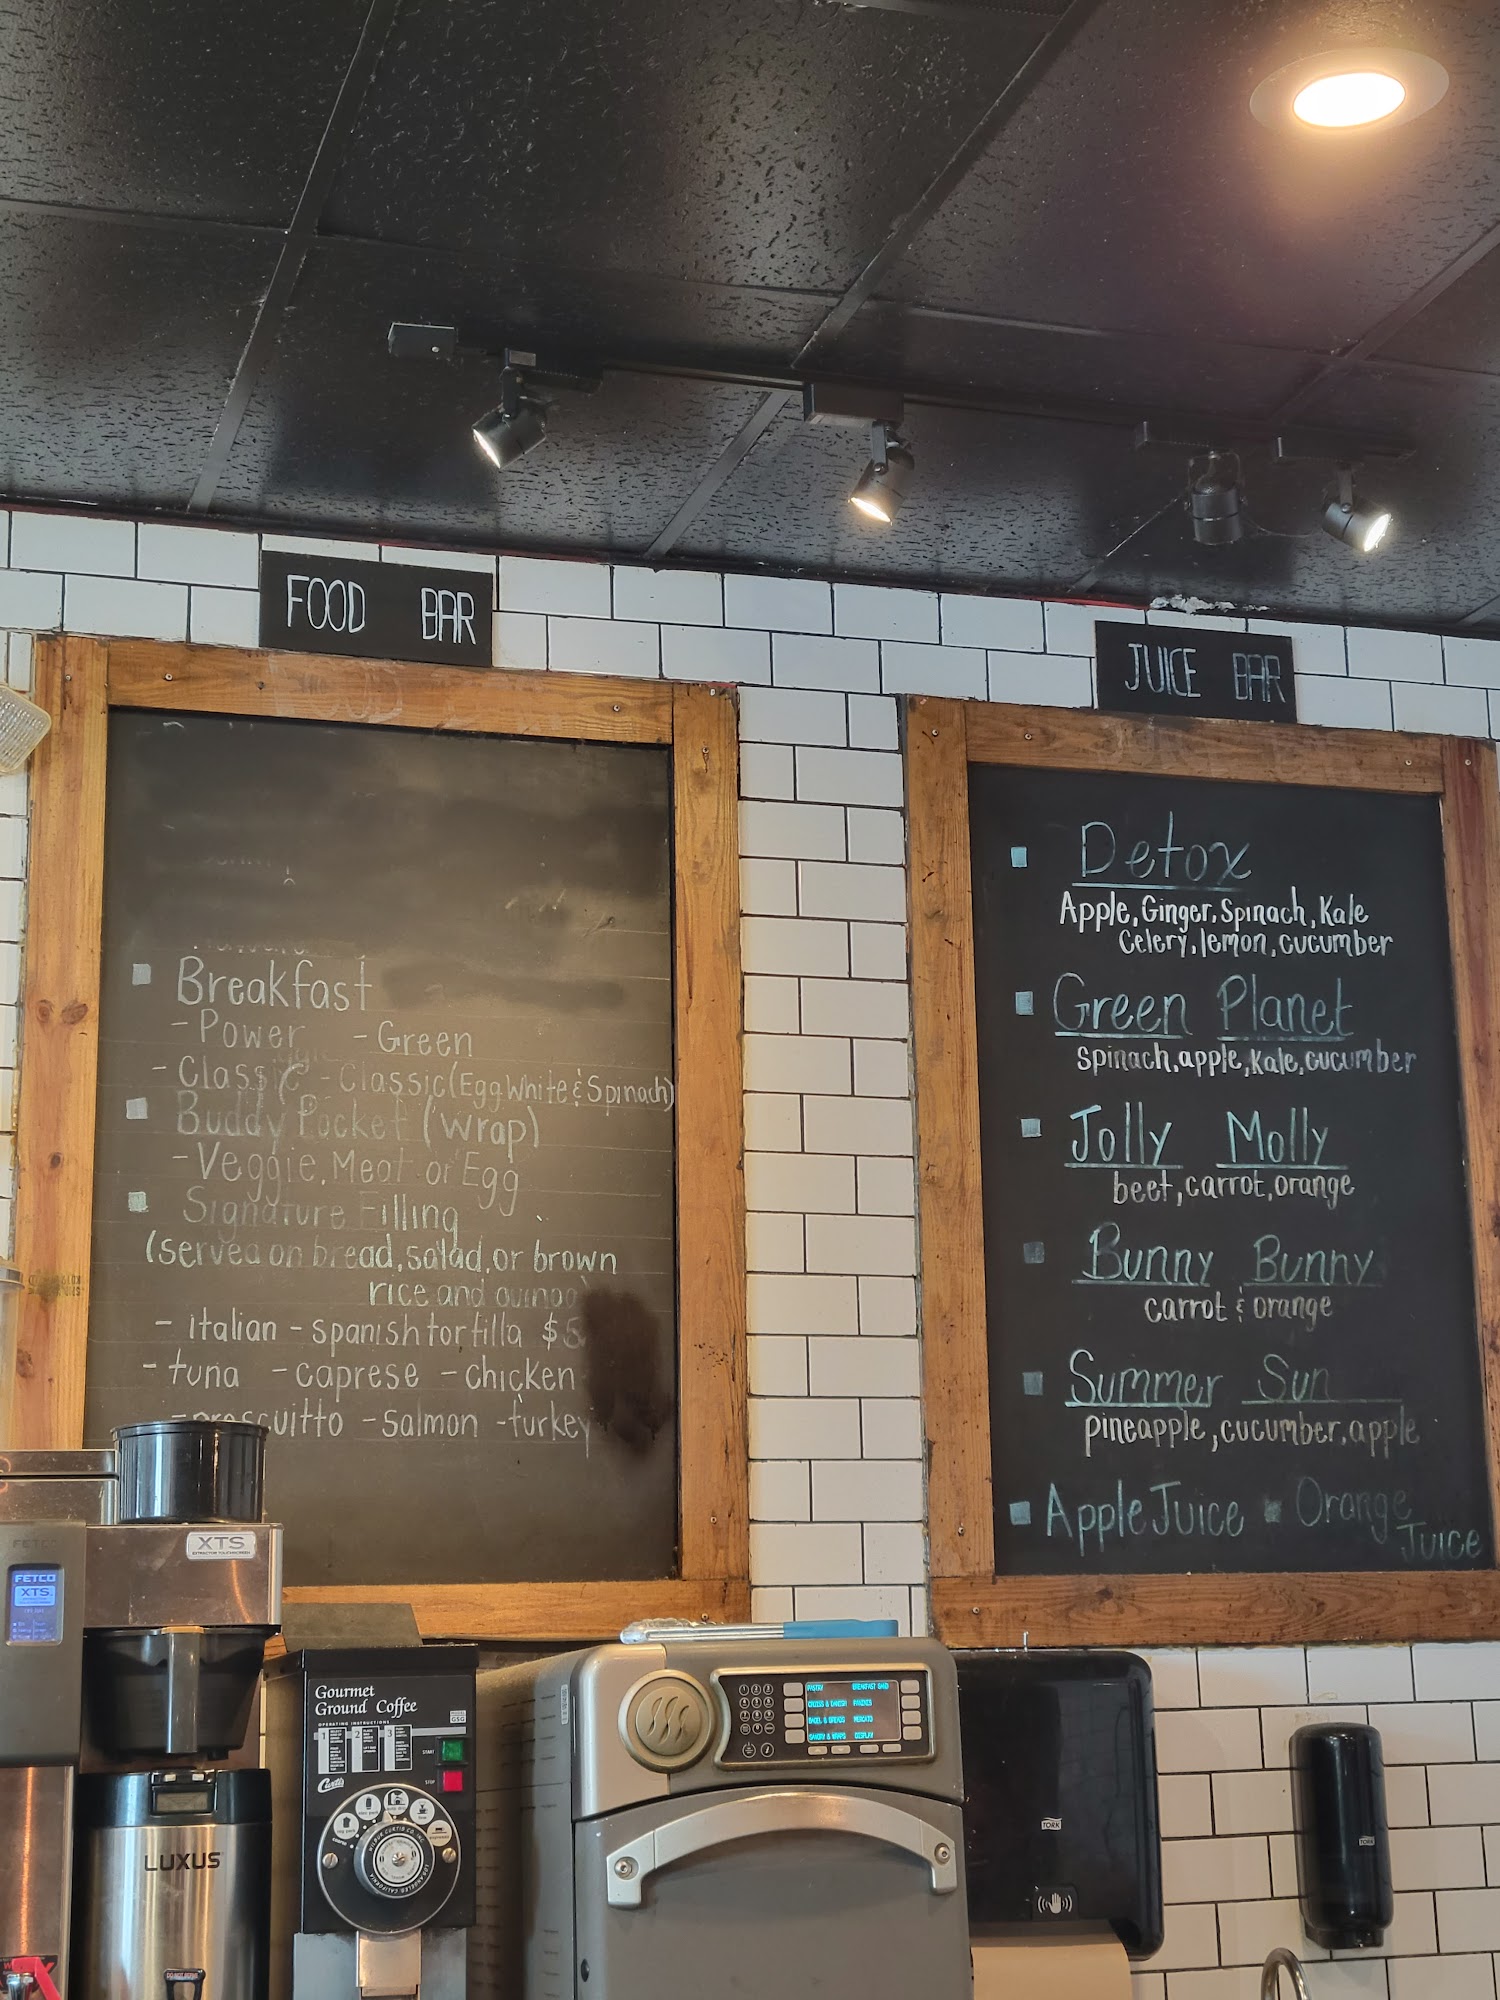 FOOD BAR
Breakfast
- Power - Green
- Classic - Classic (Egg White & Spinach)
Buddy Pocket (wrap)
- Veggie, Meat or Egg
Signature Filling
(served on bread, salad, or brown
rice and quinoa)
- italian - spanish tortilla $5
- tuna - caprese - chicken
- proscuitto - salmon - turkey
JUICE BAR
Detox
Apple, Ginger, Spinach, Kale
Celery, lemon, cucumber
Green Planet
spinach, apple, kale, cucumber
Jolly Molly
beet, carrot, orange
Bunny Bunny
carrot & orange
Summer Sun
pineapple, cucumber, apple
Apple Juice Orange
Juice
XTS
FETCO
XTS
LUXUS
Gourmet
Ground Coffee
OPERATING INSTRUCTIONS
1 2 3
START
STOP
Curtis
WILBUR CURTIS CO. INC.
LOS ANGELES, CALIFORNIA
PASTRY
DISPLAY
TORK
TORK